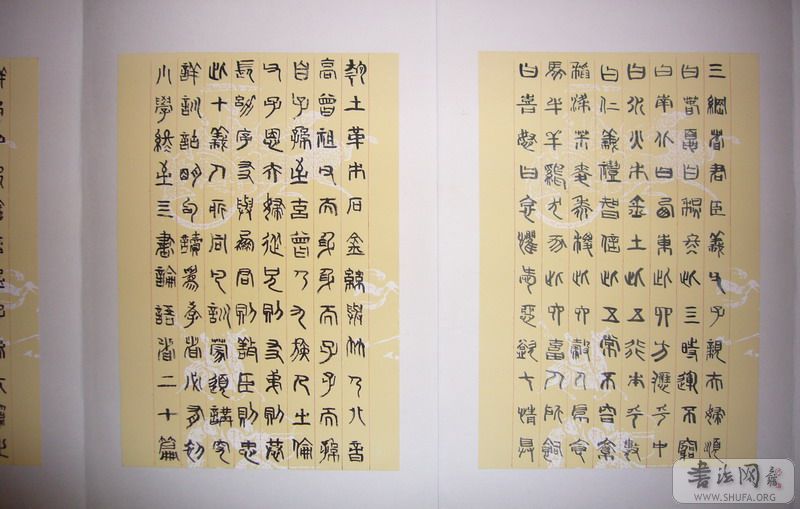 三綱者君臣義父子親夫婦順
曰春夏曰秋冬此四時運不窮
曰南北曰西東此四方應乎中
曰水火木金土此五行本乎數
曰仁義禮智信此五常不容紊
稻粱菽麥黍稷此六穀人所食
馬牛羊雞犬豕此六畜人所飼
曰喜怒曰哀懼愛惡欲七情具
匏土革木石金絲與竹乃八音
高曾祖父而身身而子子而孫
自子孫至玄曾乃九族人之倫
父子恩夫婦從兄則友弟則恭
長幼序友與朋君則敬臣則忠
此十義人所同凡訓蒙須講究
詳訓詁明句讀為學者必有初
小學終至四書論語者二十篇
书法网
WWW.SHUFA.ORG